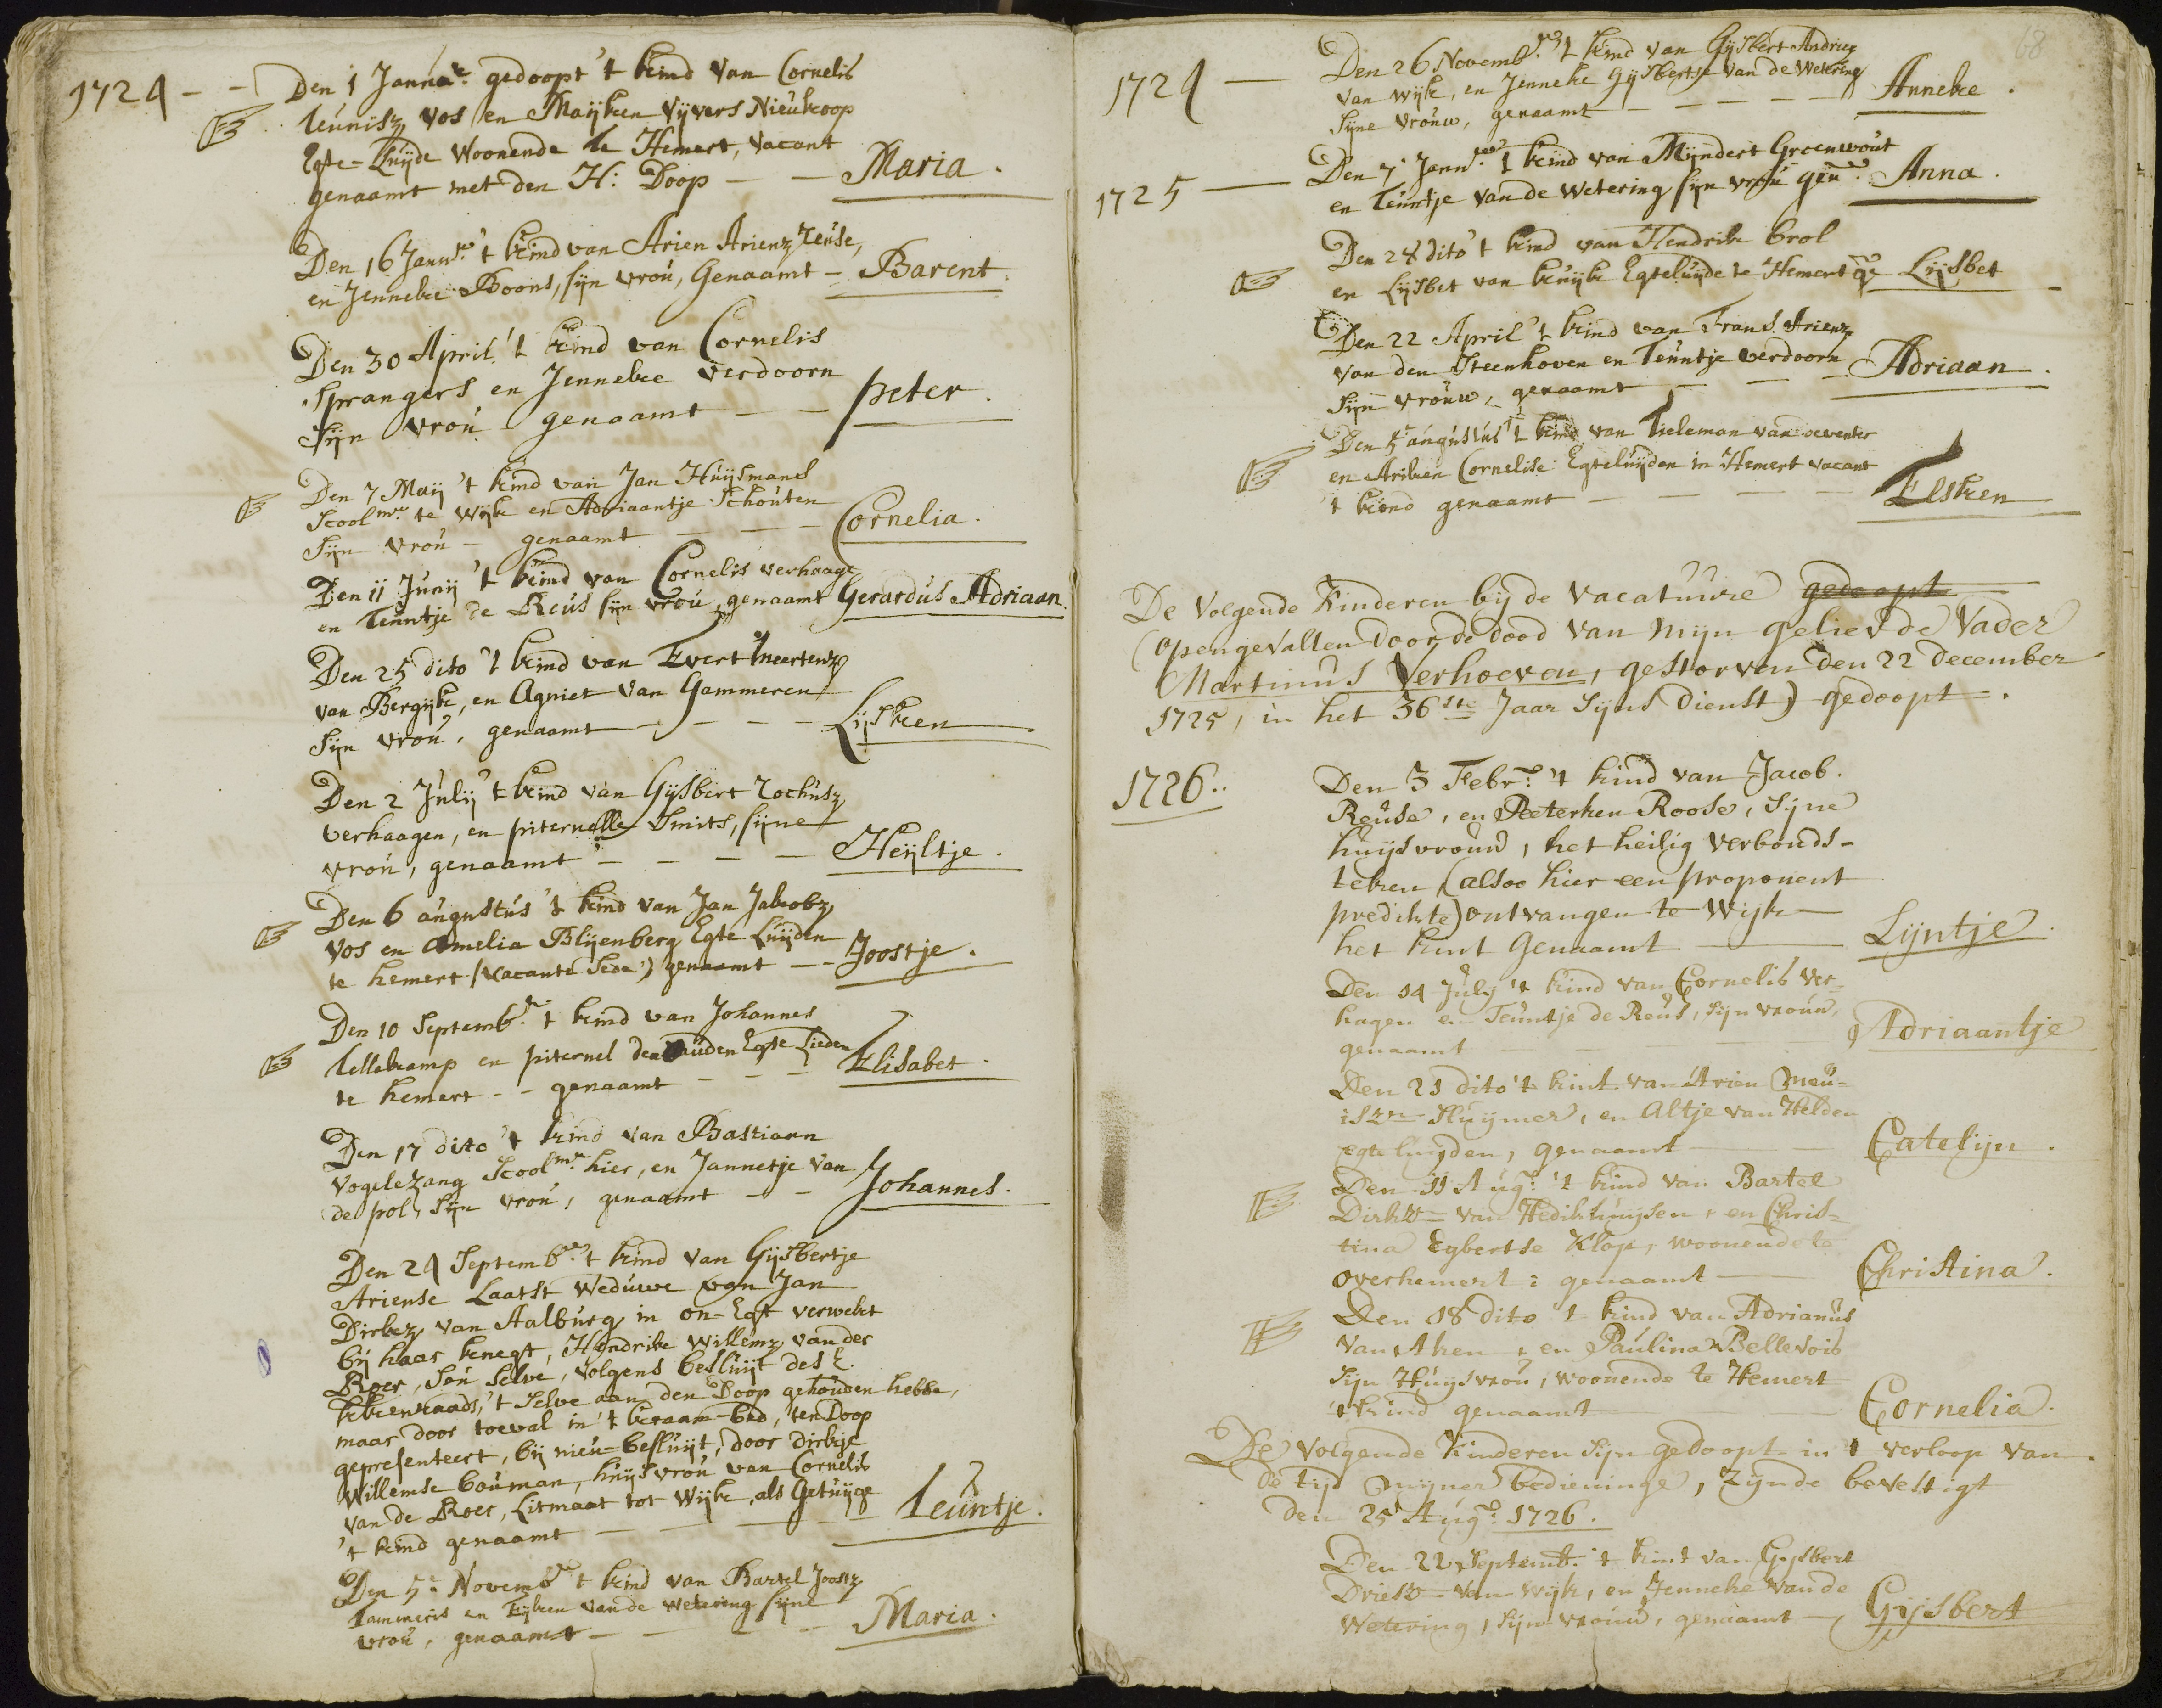 1724 - - Den 1 Januar. gedoopt 't kind van Cornelis
Teunisz vos en Maijken Vijvers Nieukoop
Egte-Luijde Woonende te Hemert, Vacant
genaamt met den H: Doop - - Maria.
Den 16 Janu. 't kind van Arien Arienz Reuse,
en Jenneke Boons, sijn vrou, Genaamt - Barent.
Den 30 April 't kind van Cornelis
Sprangers en Jenneke verdoorn
Sijn vrou genaamt - - peter.
Den 7 Maij 't kind van Jan Huijsmans
Scoolmr. te Wijk en Adriaantje Schouten
Sijn vrou - genaamt - - - Cornelia.
Den 11 Junij 't kind van Cornelis verhaage
en Teuntje de Reus sijn vrou, genaamt Gerardus Adriaan.
Den 25 dito 't kind van Evert Meertenz
van Bergijk, en Agniet van Gammeren
Sijn vrou, genaamt - - - - Lijsken
Den 2 Julij 't kind van Gijsbert Rochusz
verhaagen, en piternelle Smits, sijne
vrou, genaamt - - - - Heijltje.
Den 6 augustus 't kind van Jan Jakobz
vos en Amelia Blijenberg Egte Luijden
te hemert (vacante Sede) genaamt - - Joostje.
Den 10 Septembr. 't kind van Johannes
Tellekamp en piternel den Ouden Egte Lieden
te hemert - - genaamt - - - Elisabet.
Den 17 dito 't kind van Bastiaan
Vogelezang Scoolmr. hier, en Jannetje van
de pol, Sijn vrou, genaamt - - Johannes.
Den 24 Septembr. 't kind van Gijsbertje
Ariense Laatst Weduwe van Jan
Dirkz van Aalburg in on-Egt verwekt
bij haar knegt, Hendrik Willemz van der
Roer, Sou Selve, volgens besluijt des E.
kerkenraads, 't Selve aan den Doop gehouden hebbe,
maar door toeval in 't kraam-bed, ten Doop
gepresenteert, bij nieu-besluijt, door dirkije
Willemse bouman, huijsvrou van Cornelis
van de Roer, Litmaat tot Wijk, als Getuijge
't kind genaamt - - - - Teuntje.
Den 5e Novembr. 't kind van Bartel Joostz
Tammeris en Eijken van de Wetering sijne
vrou, genaamt - - - - Maria.
68
1724 - Den 26 Novembr. 't kind van Gijsbert Andriesz
van Wijk, en Jenneke Gijsbertse van de Wetering
Sijne vrouw, genaamt - - - - - Anneke.
1725 - Den 7 Janu. 't kind van Mijndert Groenwout
en Teuntje van de Wetering sijn vrou gen. Anna.
Den 28 dito 't kind van Hendrik brol
en Lijsbet van kuijk Egteluijde te Hemert ge Lijsbet
Den 22 April 't kind van Frans Arienz
van den Steenhoven en Teuntje verdoorn
Sijn vrouw, genaamt - - - - Adriaan.
Den 5 augustus 't kind van Tieleman van deventer
en Ariken Cornelise Egteluijden in Hemert vacant
't kiend genaamt - - - - Elsken
De volgende Kinderen bij de vacatuure gedoopt
(opengevallen door de dood van mijn geliefde Vader
Martinus Verhoeven, gestorven den 22 december
1725, in het 36ste Jaar Sijns Dienst) gedoopt.
1726.. Den 3 Febr. 't kind van Jacob.
Reuse, en Peterken Roose, Sijne
huijsvrouw, het heilig verbonds-
teken, (alsoo hier een proponent
predikte) ontvangen te Wijk
het kint Genaamt - Lijntje.
Den 14 Julij 't kind van Cornelis Ver-
hagen en Teuntje de Reus, Sijn vrouw,
genaamt Adriaantje
Den 21 dito 't kint van Arien Meu-
iszn Kuijmer, en Altje van Helden
egte luijden, genaamt - Catelijn.
Den 11 Aug: 't kind van Bartel
Dirksz van Hedikhuijsen, en Chris-
tina Egbertse Klop, woonende te
overhemert: genaamt - Christina.
Den 18 dito 't kind van Adrianus
van Aken, en Paulina Bellesois
Sijn Huijsvrou, woonende te Hemert
't kind genaamt - Cornelia.
De volgende Kinderen Sijn gedoopt in 't verloop van
de tijd mijner bedieninge, Zijnde bevestigt
den 25 Aug: 1726.
Den 22 Septemb. 't kint van Gijsbert
Driesz van Wijk, en Jenneke van de
Wetering, Sijn vrouw, genaamt - Gijsbert